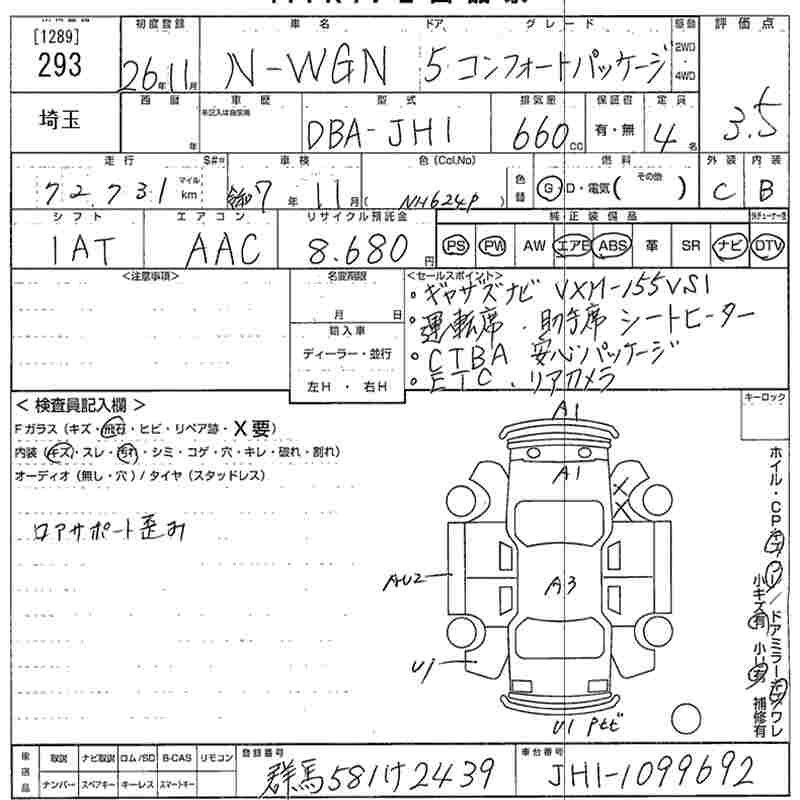 [1289]
293
初度登録 車名 ドア グレード 駆動 評価点
26年11月 N-WGN 5 コンフォートパッケージ 2WD 4WD 3.5
埼玉
西暦 車歴 型式 排気量 保証書 定員
年 未記入は自家用 DBA-JH1 660cc 有・無 4名
走行 S#※ 車検 色(Col.No) 燃料 外装 内装
72,731 マイル km 令和7年11月 (NH624P) 色替 G D・電気( その他 ) C B
シフト エアコン リサイクル預託金 純正装備品
1AT AAC 8,680円 PS PW AW エアB ABS 革 SR ナビ DTV
<注意事項> 名変期限 <セールスポイント>
月 日
輸入車
ディーラー・並行
左H ・ 右H
・ギャザズナビ VXM-155VSi
・運転席・助手席 シートヒーター
・CTBA 安心パッケージ
・ETC・リアカメラ
< 検査員記入欄 > キーロック
Fガラス(キズ・飛石・ヒビ・リペア跡・X要)
内装(キズ・スレ・汚れ・シミ・コゲ・穴・キレ・破れ・割れ)
オーディオ(無し・穴)/タイヤ(スタッドレス)
ロアサポート歪み
A1
A1
X
X
AU2
A3
U1
U1
ホイル・CP
ドアミラー
小キズ有
補修有
発送品 取説 ナビ取説 ロム/SD B-CAS リモコン 登録番号 車台番号
ナンバー スペアキー キーレス スマートキー 群馬581け2439 JH1-1099692